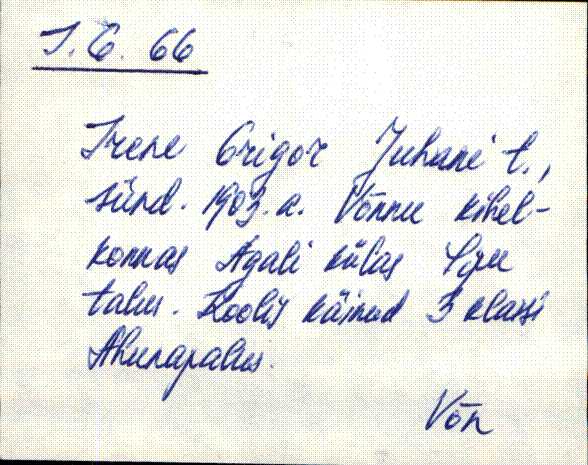 I. G. 66
Irene Grigor Juhani t.,
sünd. 1903. a. Võnnu kihel-
konnas Agali külas
talus. Koolis käinud 3 klassi
Ahunapalus.
Võn